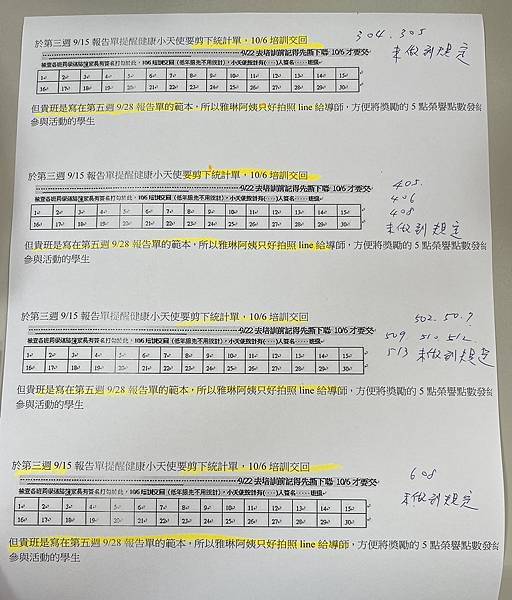 於第三週 9/15 報告單提醒健康小天使要剪下統計單，10/6 培訓交回
304、305
未做到規定
9/22 去培訓前記得先撕下聯 10/6 才要交
檢查各班同學連絡簿家長有簽名打勾於此，10/6 培訓交回（低年級先不用統計），小天使統計有(    )人簽名      班級
1 2 3 4 5 6 7 8 9 10 11 12 13 14 15
16 17 18 19 20 21 22 23 24 25 26 27 28 29 30
但貴班是寫在第五週 9/28 報告單的範本，所以雅琳阿姨只好拍照 line 給導師，方便將獎勵的 5 點榮譽點數發給
參與活動的學生
於第三週 9/15 報告單提醒健康小天使要剪下統計單，10/6 培訓交回
405.
406
408
未做到規定
9/22 去培訓前記得先撕下聯 10/6 才要交
檢查各班同學連絡簿家長有簽名打勾於此，10/6 培訓交回（低年級先不用統計），小天使統計有(    )人簽名      班級
1 2 3 4 5 6 7 8 9 10 11 12 13 14 15
16 17 18 19 20 21 22 23 24 25 26 27 28 29 30
但貴班是寫在第五週 9/28 報告單的範本，所以雅琳阿姨只好拍照 line 給導師，方便將獎勵的 5 點榮譽點數發給
參與活動的學生
於第三週 9/15 報告單提醒健康小天使要剪下統計單，10/6 培訓交回
502. 507
509 510 512
513 未做到規定
9/22 去培訓前記得先撕下聯 10/6 才要交
檢查各班同學連絡簿家長有簽名打勾於此，10/6 培訓交回（低年級先不用統計），小天使統計有(    )人簽名      班級
1 2 3 4 5 6 7 8 9 10 11 12 13 14 15
16 17 18 19 20 21 22 23 24 25 26 27 28 29 30
但貴班是寫在第五週 9/28 報告單的範本，所以雅琳阿姨只好拍照 line 給導師，方便將獎勵的 5 點榮譽點數發給
參與活動的學生
於第三週 9/15 報告單提醒健康小天使要剪下統計單，10/6 培訓交回
608
未做到規定
9/22 去培訓前記得先撕下聯 10/6 才要交
檢查各班同學連絡簿家長有簽名打勾於此，10/6 培訓交回（低年級先不用統計），小天使統計有(    )人簽名      班級
1 2 3 4 5 6 7 8 9 10 11 12 13 14 15
16 17 18 19 20 21 22 23 24 25 26 27 28 29 30
但貴班是寫在第五週 9/28 報告單的範本，所以雅琳阿姨只好拍照 line 給導師，方便將獎勵的 5 點榮譽點數發給
參與活動的學生